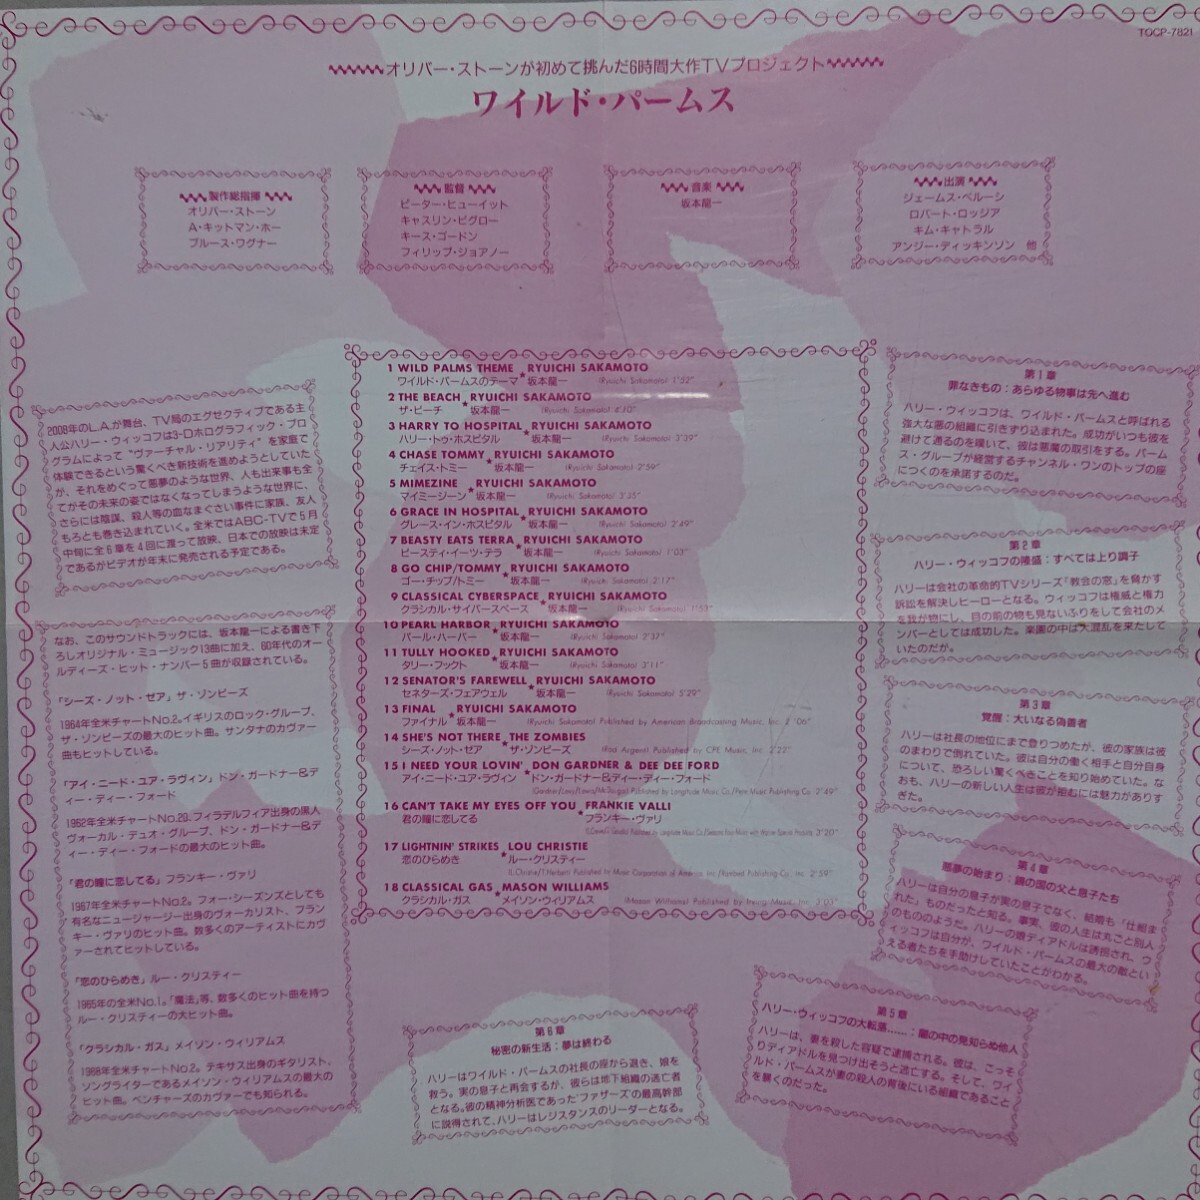 TOCP-7821
オリバー・ストーンが初めて挑んだ6時間大作TVプロジェクト
ワイルド・パームス
製作総指揮
オリバー・ストーン
A・キットマン・ホー
ブルース・ワグナー
監督
ピーター・ヒューイット
キャスリン・ビグロー
キース・ゴードン
フィリップ・ジョアノー
音楽
坂本龍一
出演
ジェームス・ベルーシ
ロバート・ロッジア
キム・キャトラル
アンジー・ディッキンソン 他
2008年のL.A.が舞台、TV局のエグゼクティブである主
人公ハリー・ウィッコフは3-Dホログラフィック・プロ
グラムによって"ヴァーチャル・リアリティ"を家庭で
体験できるという驚くべき新技術を進めようとしていた
が、それをめぐって悪夢のような世界、人も出来事も全
てがその未来の姿ではなくなってしまうような世界に、
さらには陰謀、殺人等の血なまぐさい事件に家族、友人
もろとも巻き込まれていく。全米ではABC-TVで5月
中旬に全6章を4回に渡って放映、日本での放映は未定
であるがビデオが年末に発売される予定である。
なお、このサウンドトラックには、坂本龍一による書き下
ろしオリジナル・ミュージック13曲に加え、60年代のオー
ルディーズ・ヒット・ナンバー5曲が収録されている。
「シーズ・ノット・ゼア」ザ・ゾンビーズ
1964年全米チャートNo.2。イギリスのロック・グループ、
ザ・ゾンビーズの最大のヒット曲。サンタナのカヴァー
曲もヒットしている。
「アイ・ニード・ユア・ラヴィン」ドン・ガードナー&デ
ィー・ディー・フォード
1962年全米チャートNo.20。フィラデルフィア出身の黒人
ヴォーカル・デュオ・グループ、ドン・ガードナー&デ
ィー・ディー・フォードの最大のヒット曲。
「君の瞳に恋してる」フランキー・ヴァリ
1967年全米チャートNo.2。フォー・シーズンズとしても
有名なニュージャージー出身のヴォーカリスト、フラン
キー・ヴァリのヒット曲。数多くのアーティストにカヴ
ァーされてヒットしている。
「恋のひらめき」ルー・クリスティー
1965年の全米No.1。「魔法」等、数多くのヒット曲を持つ
ルー・クリスティーの大ヒット曲。
「クラシカル・ガス」メイソン・ウィリアムス
1968年全米チャートNo.2。テキサス出身のギタリスト、
ソングライターであるメイソン・ウィリアムスの最大の
ヒット曲。ベンチャーズのカヴァーでも知られる。
1 WILD PALMS THEME★RYUICHI SAKAMOTO
ワイルド・パームスのテーマ 坂本龍一 (Ryuichi Sakamoto) 1'52"
2 THE BEACH★RYUICHI SAKAMOTO
ザ・ビーチ 坂本龍一 (Ryuichi Sakamoto) 4'10"
3 HARRY TO HOSPITAL★RYUICHI SAKAMOTO
ハリー・トゥ・ホスピタル 坂本龍一 (Ryuichi Sakamoto) 3'39"
4 CHASE TOMMY★RYUICHI SAKAMOTO
チェイス・トミー 坂本龍一 (Ryuichi Sakamoto) 2'59"
5 MIMEZINE★RYUICHI SAKAMOTO
マイミージーン 坂本龍一 (Ryuichi Sakamoto) 3'35"
6 GRACE IN HOSPITAL★RYUICHI SAKAMOTO
グレース・イン・ホスピタル 坂本龍一 (Ryuichi Sakamoto) 2'49"
7 BEASTY EATS TERRA★RYUICHI SAKAMOTO
ビースティ・イーツ・テラ 坂本龍一 (Ryuichi Sakamoto) 1'03"
8 GO CHIP/TOMMY★RYUICHI SAKAMOTO
ゴー・チップ/トミー 坂本龍一 (Ryuichi Sakamoto) 2'17"
9 CLASSICAL CYBERSPACE★RYUICHI SAKAMOTO
クラシカル・サイバースペース 坂本龍一 (Ryuichi Sakamoto) 1'53"
10 PEARL HARBOR★RYUICHI SAKAMOTO
パール・ハーバー 坂本龍一 (Ryuichi Sakamoto) 2'37"
11 TULLY HOOKED★RYUICHI SAKAMOTO
タリー・フックト 坂本龍一 (Ryuichi Sakamoto) 3'11"
12 SENATOR'S FAREWELL★RYUICHI SAKAMOTO
セネターズ・フェアウェル 坂本龍一 (Ryuichi Sakamoto) 5'29"
13 FINAL★RYUICHI SAKAMOTO
ファイナル 坂本龍一 (Ryuichi Sakamoto) Published by American Broadcasting Music, Inc. 2'06"
14 SHE'S NOT THERE★THE ZOMBIES
シーズ・ノット・ゼア ザ・ゾンビーズ (Rod Argent) Published by CPE Music, Inc. 2'22"
15 I NEED YOUR LOVIN'★DON GARDNER & DEE DEE FORD
アイ・ニード・ユア・ラヴィン ドン・ガードナー&ディー・ディー・フォード
2'49"
16 CAN'T TAKE MY EYES OFF YOU★FRANKIE VALLI
君の瞳に恋してる フランキー・ヴァリ
3'20"
17 LIGHTNIN' STRIKES★LOU CHRISTIE
恋のひらめき ルー・クリスティー
2'59"
18 CLASSICAL GAS★MASON WILLIAMS
クラシカル・ガス メイソン・ウィリアムス (Mason Williams) Published by Irving Music, Inc. 3'03"
第1章
罪なきもの:あらゆる物事は先へ進む
ハリー・ウィッコフは、ワイルド・パームスと呼ばれる
強大な悪の組織に引きずり込まれた。成功がいつも彼を
避けて通るのを嘆いて、彼は悪魔の取引をする。パーム
ス・グループが経営するチャンネル・ワンのトップの座
につくのを承諾するのだ。
第2章
ハリー・ウィッコフの隆盛:すべては上り調子
ハリーは会社の革命的TVシリーズ「教会の窓」を脅かす
訴訟を解決しヒーローとなる。ウィッコフは権威と権力
を我が物にし、目の前の物も見ないふりをして会社のメ
ンバーとしては成功した。楽園の中は大混乱を来たして
いたのだが。
第3章
覚醒:大いなる偽善者
ハリーは社長の地位にまで登りつめたが、彼の家族は彼
のまわりで倒れていた。彼は自分の働く相手と自分自身
について、恐ろしい驚くべきことを知り始めていた。な
おも、ハリーの新しい人生は彼が拒むには魅力がありす
ぎた。
第4章
悪夢の始まり:諸の国の父と息子たち
ハリーは自分の息子が実の息子でなく、結婚も「仕組ま
れた」ものだったと知る。事実、彼の人生は丸ごと別人
のもののようだ。ハリーの娘ディアドルは誘拐され、ウ
ィッコフは自分が、ワイルド・パームスの最大の敵とい
える者たちを手助けしていたことがわかる。
第5章
ハリー・ウィッコフの大転落……:闇の中の見知らぬ他人
ハリーは、妻を殺した容疑で逮捕される。彼は、こっそ
りディアドルを見つけ出そうと逃亡する。そして、ワイ
ルド・パームスが妻の殺人の背後にいる組織であること
を暴くのだった。
第6章
秘密の新生活:夢は終わる
ハリーはワイルド・パームスの社長の座から退き、娘を
救う。実の息子と再会するが、彼らは地下組織の逃亡者
となる。彼の精神分析医であった"ファザーズ"の最高幹部
に説得されて、ハリーはレジスタンスのリーダーとなる。